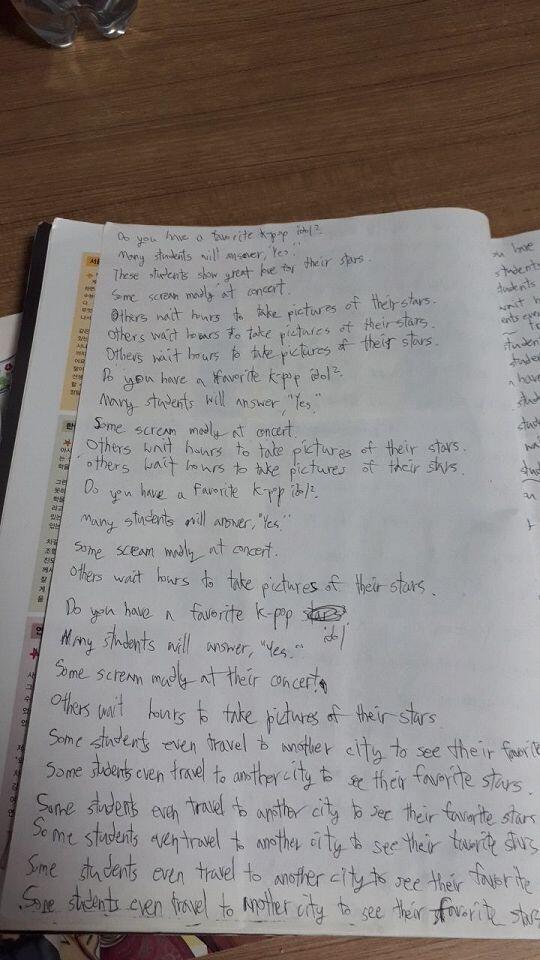 Do you have a favorite k-pop idol?
Many students will answer, "Yes."
These students show great love for their stars.
Some scream madly at concert.
Others wait hours to take pictures of their stars.
Others wait hours to take pictures of their stars.
Others wait hours to take pictures of their stars.
Do you have a favorite k-pop idol?
Many students will answer, "Yes."
Some scream madly at concert.
Others wait hours to take pictures of their stars.
others wait hours to take pictures of their stars.
Do you have a favorite k-pop idol?
many students will answer, "Yes."
Some scream madly at concert.
Others wait hours to take pictures of their stars.
Do you have a favorite k-pop
idol
Many students will answer, "Yes."
Some scream madly at their concert.
Others wait hours to take pictures of their stars
Some students even travel to another city to see their favorite
Some students even travel to another city to see their favorite stars.
Some students even travel to another city to see their favorite stars
Some students even travel to another city to see their favorite stars
Some students even travel to another city to see their favorite
Some students even travel to another city to see their favorite stars